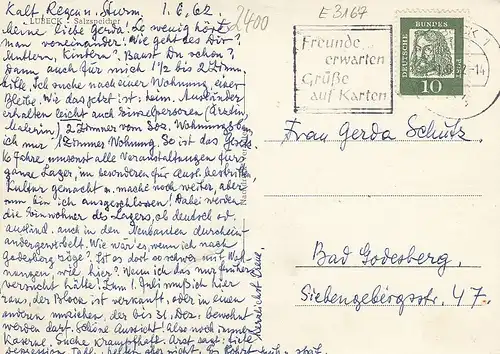 Kalt, Regen u. Sturm 1.6.62
LÜBECK · Salzspeicher
Meine liebe Gerda! So wenig hört
man voneinander! Wie geht es Dir?
Kindern? Baust Du schon?
Dann auch für mich 1½ bis 2 Zim.
bitte. Ich suche nach einer Wohnung, einer
Bleibe. Wie das jetzt ist: beim Ausländer
erhalten leicht auch Einzelpersonen (Ärztin,
Malerin) 2 Zimmer vom Soz. Wohnungsbau
ich nur 1 Zimmer Wohnung. So ist das Gesetz.
16 Jahre umsonst alle Veranstaltungen fürs
ganze Lager, im besonderen für Ausl. bestritten,
Kultur gemacht u. mache noch weiter, aber
nun bin ich ausgeschlossen! Dabei werden
die Einwohner des Lagers, ob deutsch od.
ausländ. auch in den Neubauten durchein-
andergewürfelt. Wie wär es, wenn ich nach
Godesberg zöge? Ist es dort so schwer mit Woh-
nungen wie hier? Wenn ich das nur früher
versucht hätte! Zum 1. Juli muß ich hier
raus, der Block ist verkauft, oder in einen
anderen umziehen, der bis 31. Dez. bewohnt
werden darf. Schöne Aussicht! Also noch immer
Kaserne. Suche krampfhaft. Arzt sagt:
Herzlichst Deine
2400
E 3167
Freunde
erwarten
Grüße
auf Karten
DEUTSCHE BUNDESPOST
10
-14
Frau Gerda Schütz
Bad Godesberg,
Siebengebirgsstr. 47